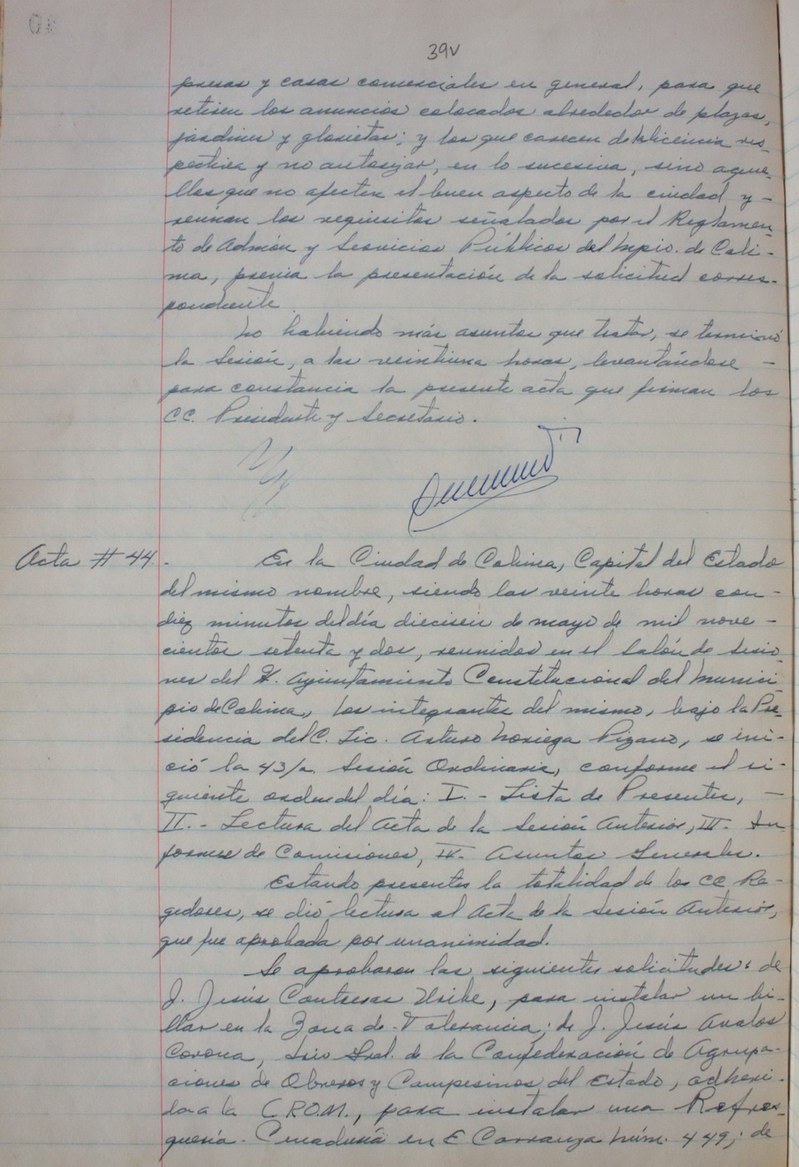 39v
presas y casas comerciales en general, para que
retiren los anuncios colocados alrededor de plazas,
jardines y glorietas; y los que carecen de licencia res-
pectiva y no autorizar, en lo sucesivo, sino aque-
llos que no afecten el buen aspecto de la ciudad y -
reunan los requisitos señalados por el Reglamen-
to de Admón y Servicios Públicos del Mpio. de Coli-
ma, previa la presentación de la solicitud corres-
pondiente.
No habiendo más asuntos que tratar, se terminó
la Sesión, a las veintiuna horas, levantándose -
para constancia la presente acta que firman los
CC. Presidente y Secretario.
Acta # 44.
En la Ciudad de Colima, Capital del Estado
del mismo nombre, siendo las veinte horas con -
diez minutos del día dieciseis de mayo de mil nove -
cientos setenta y dos, reunidos en el Salón de Sesio-
nes del H. Ayuntamiento Constitucional del Munici-
pio de Colima, los integrantes del mismo, bajo la Pre-
sidencia del C. Lic. Arturo Noriega Pizano, se ini-
ció la 43/a. Sesión Ordinaria, conforme el si-
guiente orden del día: I.- Lista de Presentes, -
II.- Lectura del Acta de la Sesión Anterior, III. In
formes de Comisiones, IV. Asuntos Generales.
Estando presentes la totalidad de los CC. Re-
gidores, se dió lectura al Acta de la Sesión Anterior,
que fue aprobada por unanimidad.
Se aprobaron las siguientes solicitudes: de
J. Jesús Contreras Uribe, para instalar un bi-
llar en la Zona de Tolerancia; de J. Jesús Avalos
Corona, Srio Gral. de la Confederación de Agrupa-
ciones de Obreros y Campesinos del Estado, adheri-
da a la C.R.O.M., para instalar una Refres-
quería - Cenaduría en E Carranza Núm. 449; de